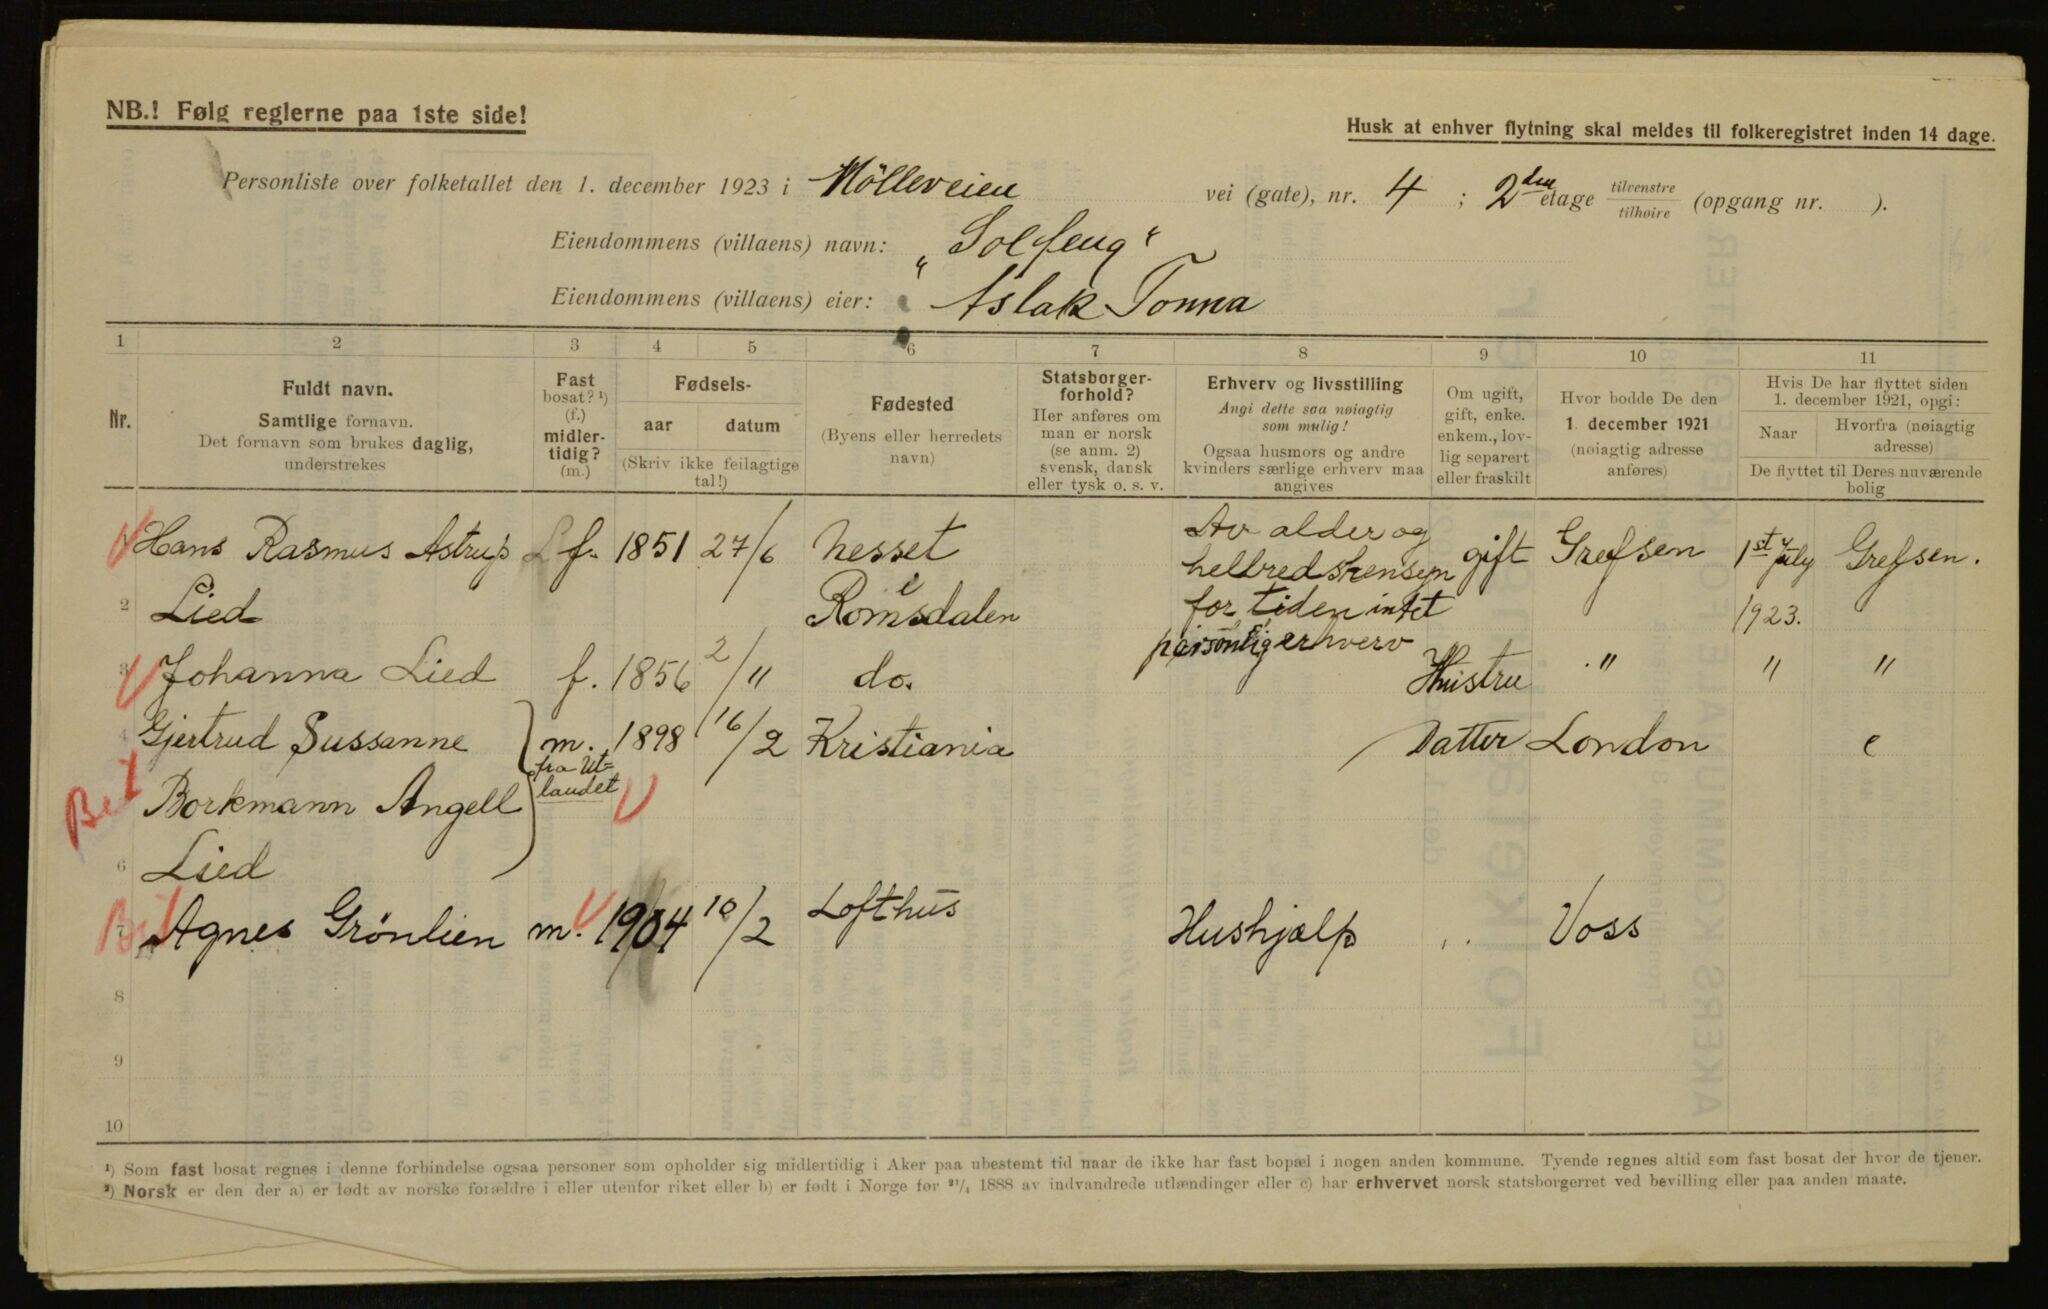 NB.! Følg reglerne paa 1ste side!
Husk at enhver flytning skal meldes til folkeregistret inden 14 dage.
Personliste over folketallet den 1. december 1923 i Mölleveien vei (gate), nr. 4 ; 2den etage tilvenstre tilhøire (opgang nr. ).
Eiendommens (villaens) navn: „Solfeng"
Eiendommens (villaens) eier: Aslak Tonna
1 2 3 4 5 6 7 8 9 10 11
Nr.
Fuldt navn.
Samtlige fornavn.
Det fornavn som brukes daglig,
understrekes
Fast
bosat? ¹)
(f.)
midler-
tidig?
(m.)
Fødsels-
aar datum
(Skriv ikke feilagtige
tal!)
Fødested
(Byens eller herredets
navn)
Statsborger-
forhold?
Her anføres om
man er norsk
(se anm. 2)
svensk, dansk
eller tysk o. s. v.
Erhverv og livsstilling
Angi dette saa nøiagtig
som mulig!
Ogsaa husmors og andre
kvinders særlige erhverv maa
angives
Om ugift,
gift, enke.
enkem., lov-
lig separert
eller fraskilt
Hvor bodde De den
1. december 1921
(nøiagtig adresse
anføres)
Hvis De har flyttet siden
1. december 1921, opgi:
Naar
Hvorfra (nøiagtig
adresse)
De flyttet til Deres nuværende
bolig
Hans Rasmus Astrup f. 1851 27/6 Nesset Av alder og gift Grefsen 1st July Grefsen.
helbredshensyn
2 Lied i Romsdalen for tiden intet 1923.
personlig erhverv
3 Johanna Lied f. 1856 2/11 do. Hustru " " "
4 Gjertrud Sussanne m. 1898 16/2 Kristiania Datter London
fra Ut=
landet
Bet Borkmann Angell
6 Lied
Bet 7 Agnes Grönlien m. 1904 10/2 Lofthus Hushjælp Voss
8
9
10
¹) Som fast bosat regnes i denne forbindelse ogsaa personer som opholder sig midlertidig i Aker paa ubestemt tid naar de ikke har fast bopæl i nogen anden kommune. Tyende regnes altid som fast bosat der hvor de tjener.
²) Norsk er den der a) er født av norske forældre i eller utenfor riket eller b) er født i Norge før ²¹/₄ 1888 av indvandrede utlændinger eller c) har erhvervet norsk statsborgerret ved bevilling eller paa anden maate.